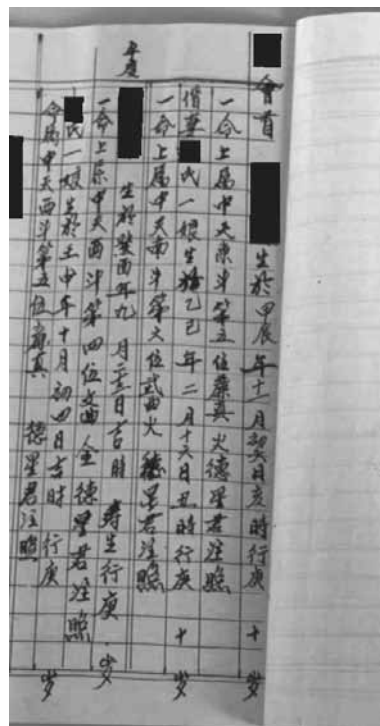 會首 生於甲辰年十二月初六日亥時行庚 十 岁
一命上属中天東斗第五位廉真火德星君注照
偕妻 氏一娘生於乙巳年二月十六日丑時行庚 十 岁
一命上属中天南斗第六位武曲火德星君注照
年庚 生於癸酉年九月二三日吉時 壽生行庚 岁
一命上属中天酉斗第四位文曲金德星君注照
氏一娘生於壬申年十月初四日吉時行庚 岁
命属中天西斗第五位廉真 德星君注照